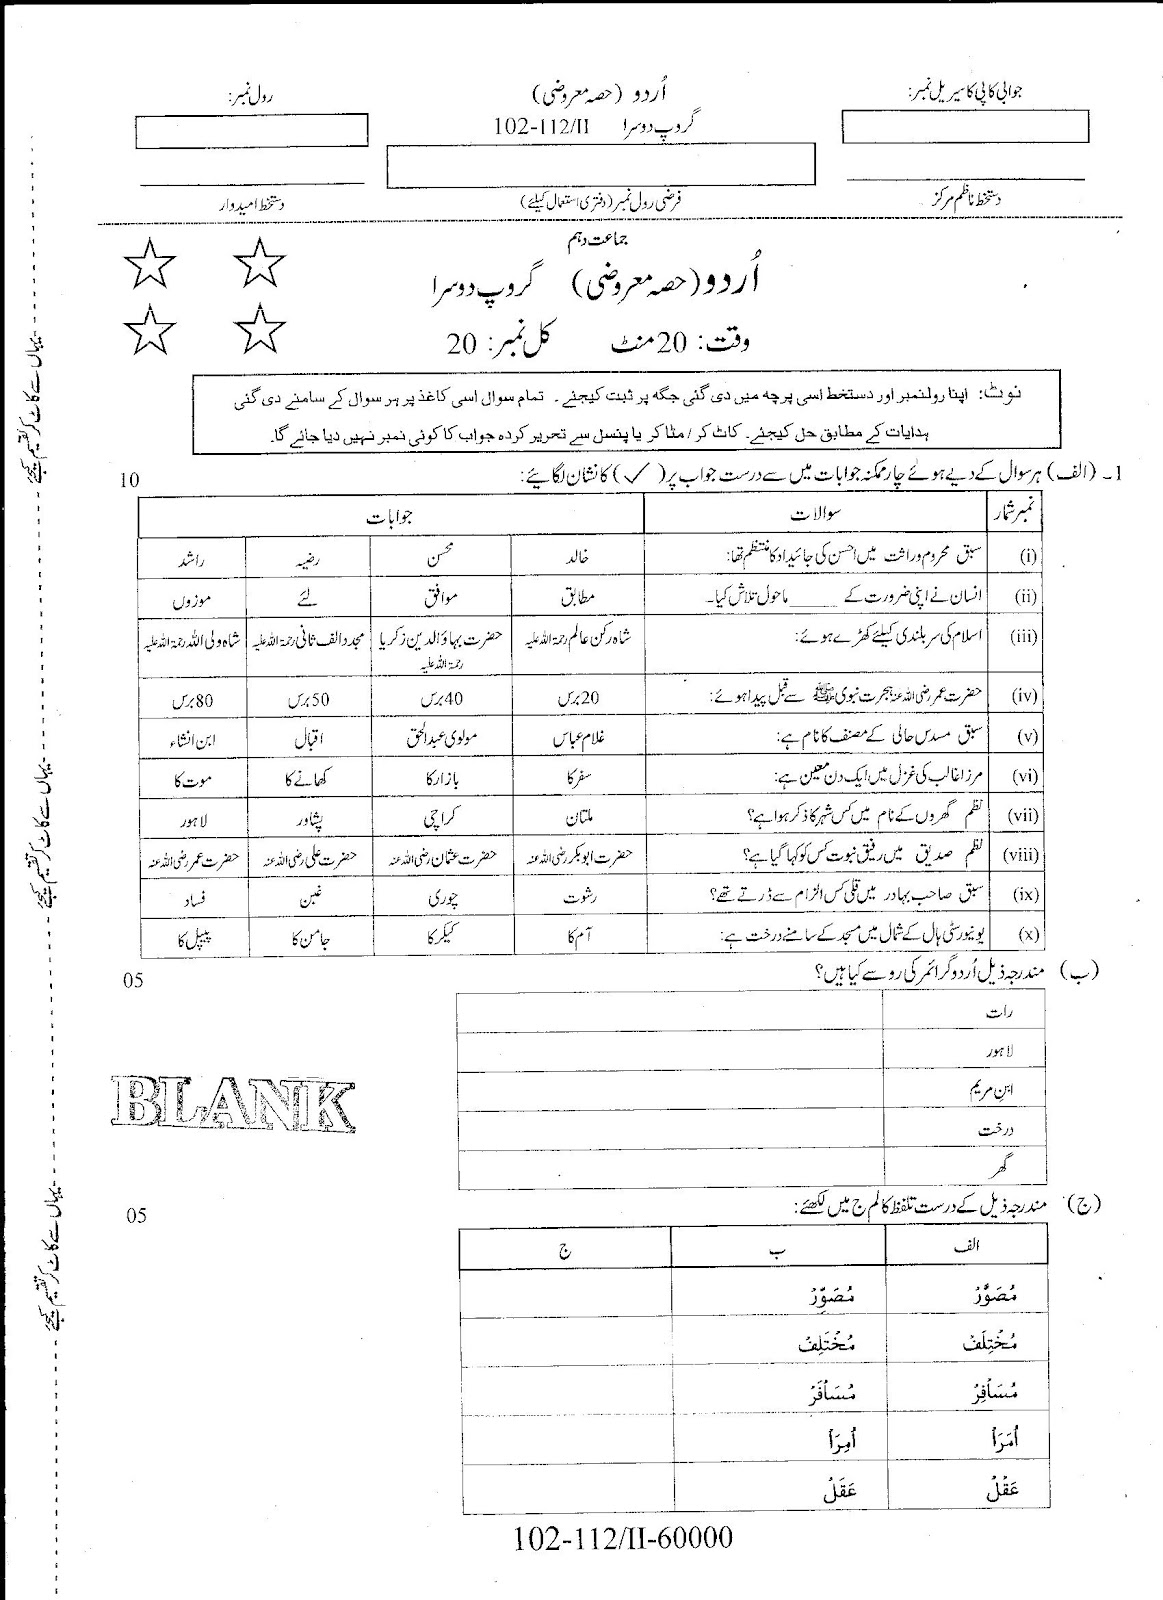 جوابی کاپی کا سیریل نمبر:
اُردو (حصہ معروضی)
رول نمبر:
گروپ دوسرا 102-112/II
دستخط ناظم مرکز
فرضی رول نمبر (دفتری استعمال کیلئے)
دستخط امیدوار
جماعت دہم
اُردو (حصہ معروضی) گروپ دوسرا
وقت: 20 منٹ کل نمبر: 20
نوٹ: اپنا رولنمبر اور دستخط اسی پرچہ میں دی گئی جگہ پر ثبت کیجئے۔ تمام سوال اسی کاغذ پر ہر سوال کے سامنے دی گئی
ہدایات کے مطابق حل کیجئے۔ کاٹ کر/ مٹا کر یا پنسل سے تحریر کردہ جواب کا کوئی نمبر نہیں دیا جائے گا۔
1۔ (الف) ہر سوال کے دیے ہوئے چار ممکنہ جوابات میں سے درست جواب پر (✓) کا نشان لگائیے: 10
نمبر شمار سوالات جوابات
(i) سبق محروم وراثت میں احسن کی جائیداد کا منتظم تھا: خالد محسن رضیہ راشد
(ii) انسان نے اپنی ضرورت کے ______ ماحول تلاش کیا۔ مطابق موافق لئے موزوں
(iii) اسلام کی سربلندی کیلئے کھڑے ہوئے: شاہ رکن عالم رحمۃ اللہ علیہ حضرت بہاؤ الدین زکریا رحمۃ اللہ علیہ مجدد الف ثانی رحمۃ اللہ علیہ شاہ ولی اللہ رحمۃ اللہ علیہ
(iv) حضرت عمر رضی اللہ عنہ ہجرت نبوی ﷺ سے قبل پیدا ہوئے: 20 برس 40 برس 50 برس 80 برس
(v) سبق مسدس حالی کے مصنف کا نام ہے: غلام عباس مولوی عبدالحق اقبال ابن انشاء
(vi) مرزا غالب کی غزل میں ایک دن معین ہے: سفر کا بازار کا کھانے کا موت کا
(vii) نظم گھروں کے نام میں کس شہر کا ذکر ہوا ہے؟ ملتان کراچی پشاور لاہور
(viii) نظم صدیق میں رفیق نبوت کس کو کہا گیا ہے؟ حضرت ابوبکر رضی اللہ عنہ حضرت عثمان رضی اللہ عنہ حضرت علی رضی اللہ عنہ حضرت عمر رضی اللہ عنہ
(ix) سبق صاحب بہادر میں قلی کس الزام سے ڈرتے تھے؟ رشوت چوری غبن فساد
(x) یونیورسٹی ہال کے شمال میں مسجد کے سامنے درخت ہے: آم کا کیکر کا جامن کا پیپل کا
(ب) مندرجہ ذیل اُردو گرائمر کی رو سے کیا ہیں؟ 05
رات
لاہور
ابن مریم
درخت
گھر
BLANK
(ج) مندرجہ ذیل کے درست تلفظ کالم ج میں لکھئے: 05
الف ب ج
مُصَوَّرْ مُصَوِّرْ
مُخْتِلَفْ مُخْتَلِفْ
مُسَاْفِرْ مُسَاْفَرْ
اُمَرَاْ اُمِرَاْ
عَقْلْ عَقَلْ
102-112/II-60000
یہاں سے کاٹ کر تقسیم کیجئے
یہاں سے کاٹ کر تقسیم کیجئے
یہاں سے کاٹ کر تقسیم کیجئے